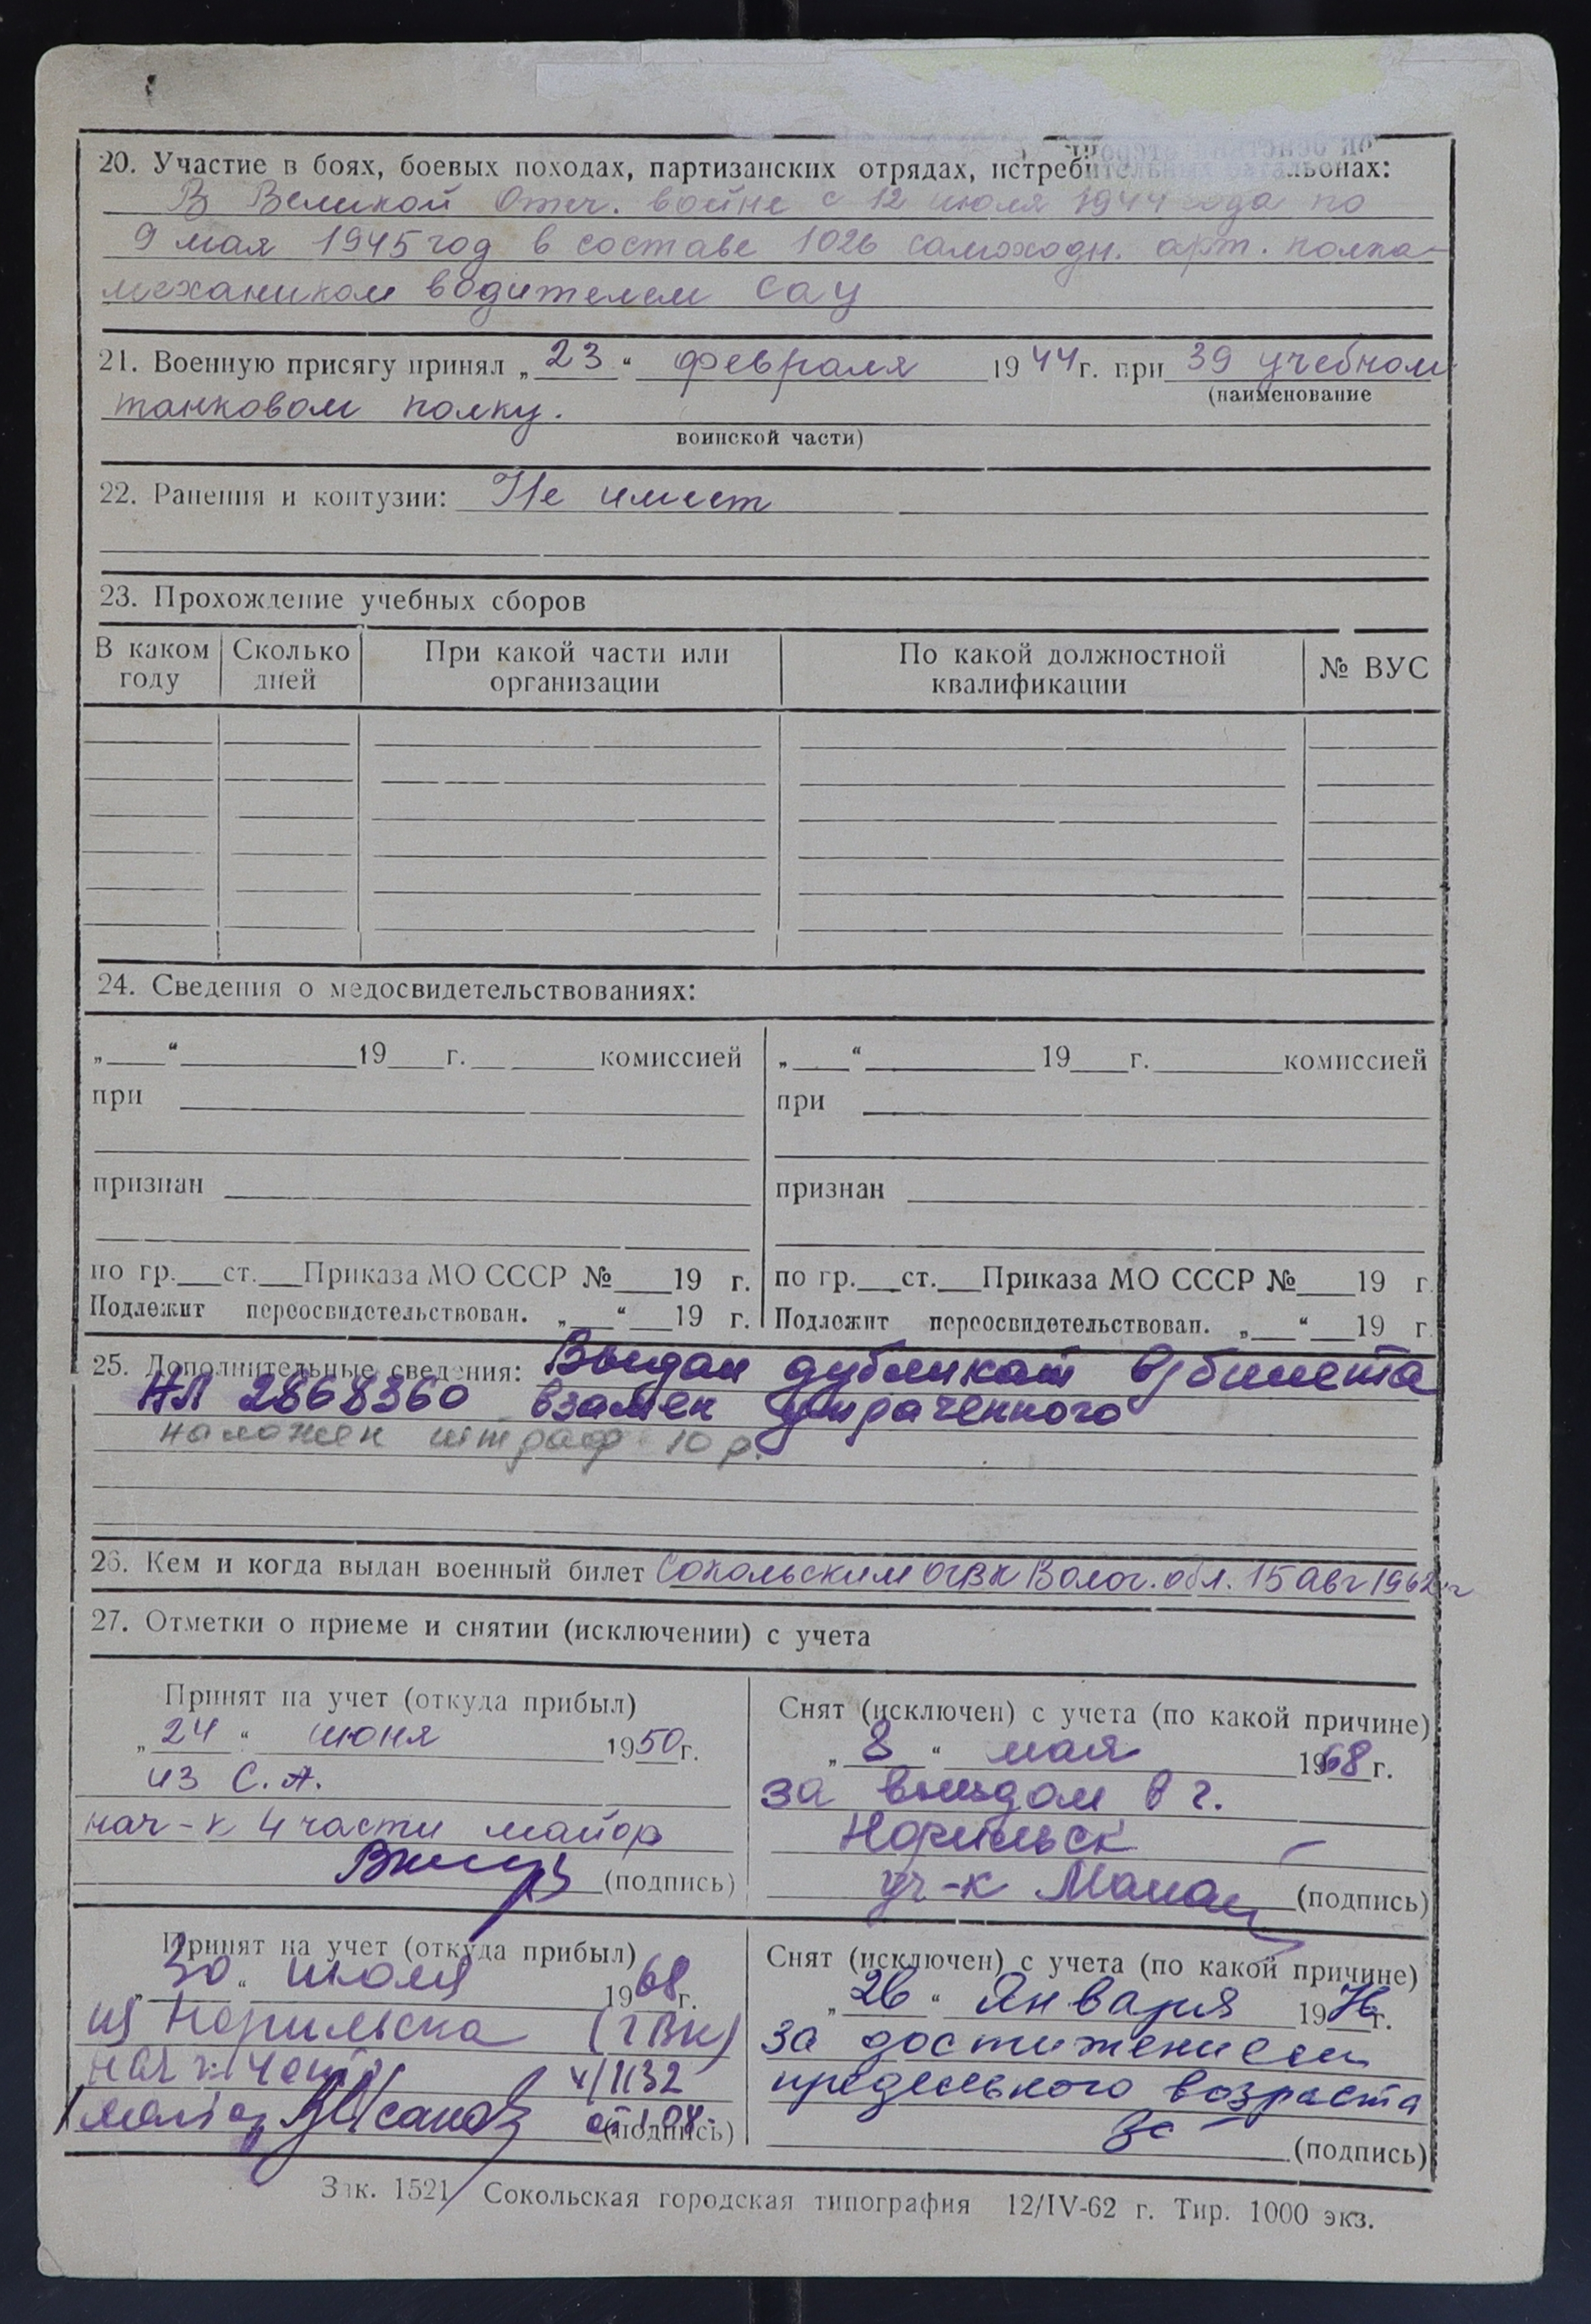 20. Участие в боях, боевых походах, партизанских отрядах, истребительных батальонах:
В Великой Отеч. войне с 12 июля 1944 года по
9 мая 1945 год в составе 1026 самоходн. арт. полка-
механиком водителем сау
21. Военную присягу принял „23“ февраля 1944 г. при 39 учебном
(наименование
танковом полку.
воинской части)
22. Ранения и контузии: Не имеет
23. Прохождение учебных сборов
В каком году Сколько дней При какой части или организации По какой должностной квалификации № ВУС
24. Сведения о медосвидетельствованиях:
„ “ 19 г. комиссией „ “ 19 г. комиссией
при при
признан признан
по гр. ст. Приказа МО СССР № 19 г. по гр. ст. Приказа МО СССР № 19 г.
Подлежит переосвидетельствован. „ “ 19 г. Подлежит переосвидетельствован. „ “ 19 г.
25. Дополнительные сведения: Выдан дубликат в/билета
НЛ 2868360 взамен утраченного
наложен штраф 10 р.
26. Кем и когда выдан военный билет Сокольским ОГВК Волог. обл. 15 авг 1962 г
27. Отметки о приеме и снятии (исключении) с учета
Принят на учет (откуда прибыл)
„24“ июня 1950 г.
из С.А.
нач-к 4 части майор
(подпись)
Снят (исключен) с учета (по какой причине)
„8“ мая 1968 г.
за выездом в г.
Норильск
уч-к
(подпись)
Принят на учет (откуда прибыл)
30 июля 1968 г.
из Норильска (ГВК)
нач
(подпись)
Снят (исключен) с учета (по какой причине)
„26“ Января 1976 г.
за достижением
предельного возраста
(подпись)
Зак. 1521 Сокольская городская типография 12/IV-62 г. Тир. 1000 экз.